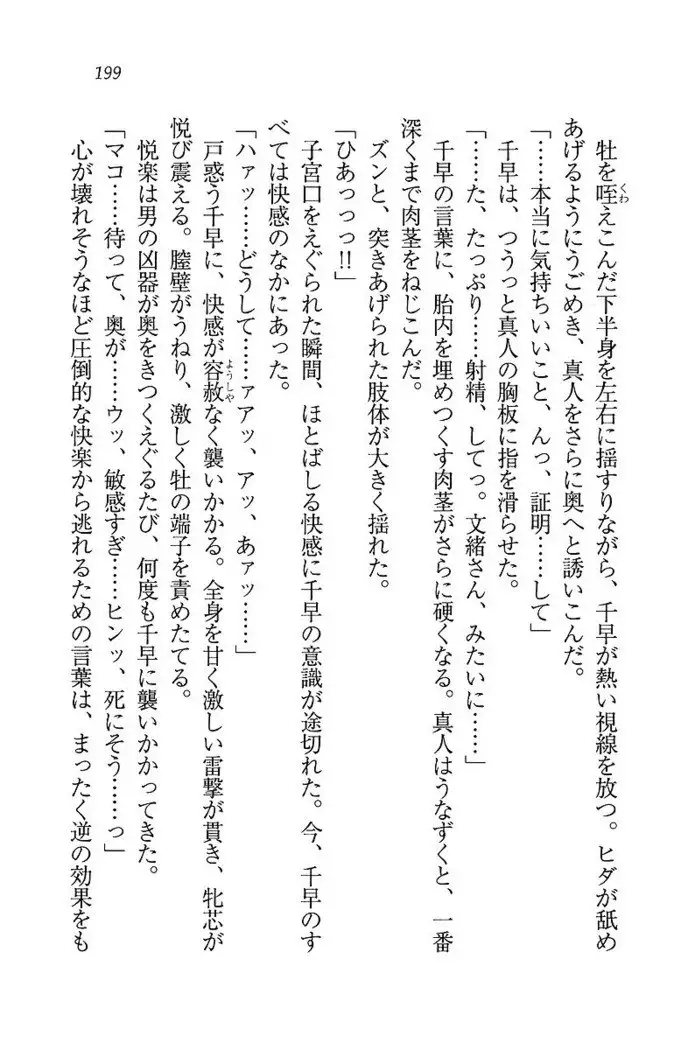 199
牡を咥えこんだ下半身を左右に揺すりながら、千早が熱い視線を放つ。ヒダが舐め
あげるようにうごめき、真人をさらに奥へと誘いこんだ。
「……本当に気持ちいいこと、んっ、証明……して」
千早は、つうっと真人の胸板に指を滑らせた。
「……た、たっぷり……射精、してっ。文緒さん、みたいに……」
千早の言葉に、胎内を埋めつくす肉茎がさらに硬くなる。真人はうなずくと、一番
深くまで肉茎をねじこんだ。
ズンと、突きあげられた肢体が大きく揺れた。
「ひあっっっ!!」
子宮口をえぐられた瞬間、ほとばしる快感に千早の意識が途切れた。今、千早のす
べては快感のなかにあった。
「ハァッ……どうして……ァアッ、アッ、あァッ……」
戸惑う千早に、快感が容赦なく襲いかかる。全身を甘く激しい雷撃が貫き、牝芯が
悦び震える。膣壁がうねり、激しく牡の端子を責めたてる。
悦楽は男の凶器が奥をきつくえぐるたび、何度も千早に襲いかかってきた。
「マコ……待って、奥が……ウッ、敏感すぎ……ヒンッ、死にそう……っ」
心が壊れそうなほど圧倒的な快楽から逃れるための言葉は、まったく逆の効果をも